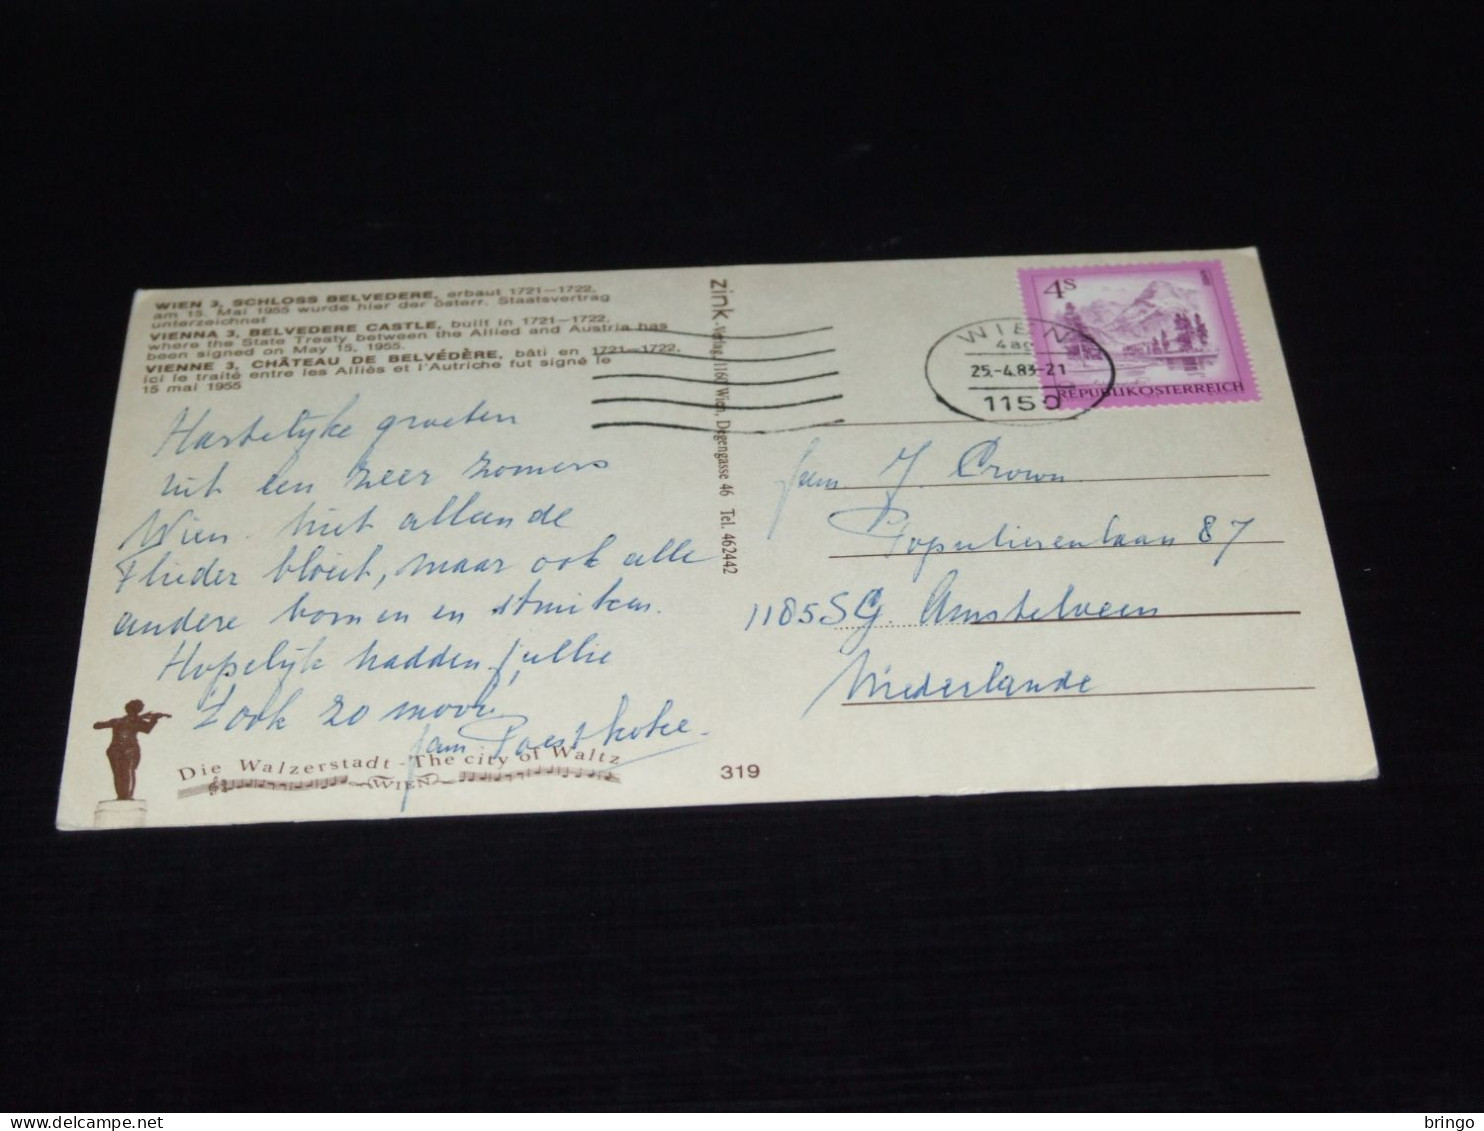 WIEN 3, SCHLOSS BELVEDERE, erbaut 1721—1722,
am 15. Mai 1955 wurde hier der österr. Staatsvertrag
unterzeichnet
VIENNA 3, BELVEDERE CASTLE, built in 1721—1722,
where the State Treaty between the Allied and Austria has
been signed on May 15, 1955.
VIENNE 3, CHÂTEAU DE BELVÉDÈRE, bâti en 1721—1722,
ici le traité entre les Alliés et l'Autriche fut signé le
15 mai 1955
Hartelijke groeten
uit een zeer zomers
Wien. Niet alleen de
Flieder bloeit, maar ook alle
andere bomen en struiken.
Hopelijk hadden jullie
't ook zo mooi
fam.
Die Walzerstadt - The city of Waltz
WIEN
319
zink-Verlag, 1160 Wien, Degengasse 46 Tel. 462442
4S
REPUBLIK ÖSTERREICH
WIEN
25.-4.83-21
1150
fam J. Crown
Populierenlaan 87
1185SG. Amstelveen
Niederlande
bringo